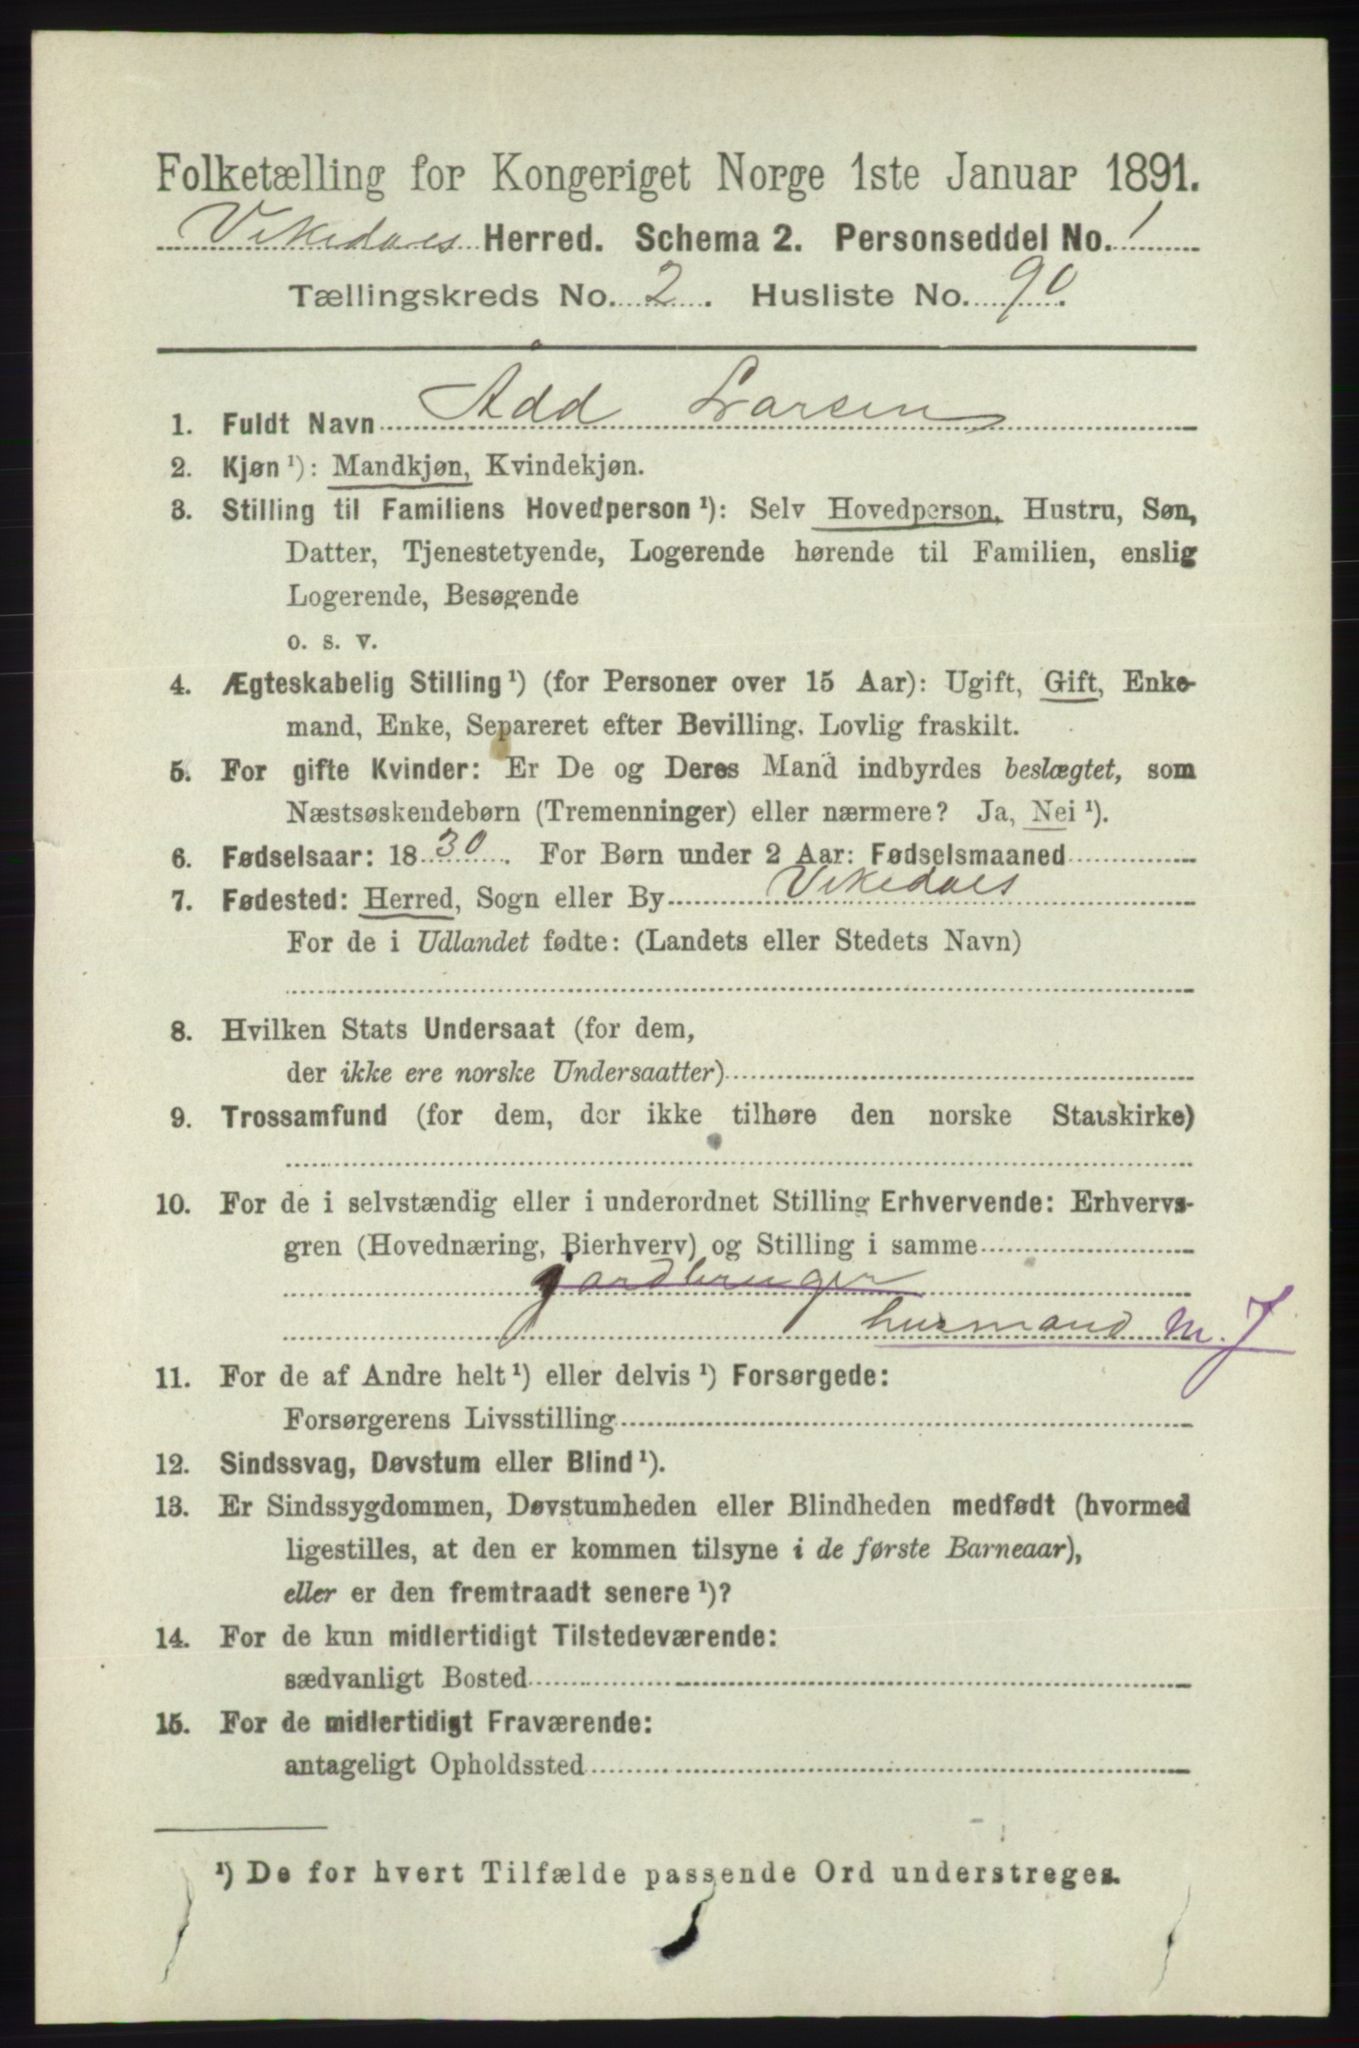 Folketælling for Kongeriget Norge 1ste Januar 1891.
Vikedals Herred. Schema 2. Personseddel No. 1
Tællingskreds No. 2. Husliste No. 90.
1. Fuldt Navn Ådd Larsen
2. Kjøn ¹): Mandkjøn, Kvindekjøn.
3. Stilling til Familiens Hovedperson ¹): Selv Hovedperson, Hustru, Søn,
Datter, Tjenestetyende, Logerende hørende til Familien, enslig
Logerende, Besøgende
o. s. v.
4. Ægteskabelig Stilling ¹) (for Personer over 15 Aar): Ugift, Gift, Enke-
mand, Enke, Separeret efter Bevilling. Lovlig fraskilt.
5. For gifte Kvinder: Er De og Deres Mand indbyrdes beslægtet, som
Næstsøskendebørn (Tremenninger) eller nærmere? Ja, Nei ¹).
6. Fødselsaar: 1830. For Børn under 2 Aar: Fødselsmaaned
7. Fødested: Herred, Sogn eller By Vikedals
For de i Udlandet fødte: (Landets eller Stedets Navn)
8. Hvilken Stats Undersaat (for dem,
der ikke ere norske Undersaatter)
9. Trossamfund (for dem, der ikke tilhøre den norske Statskirke)
10. For de i selvstændig eller i underordnet Stilling Erhvervende: Erhvervs-
gren (Hovednæring, Bierhverv) og Stilling i samme
jordbruger
husmand m. J
11. For de af Andre helt ¹) eller delvis ¹) Forsørgede:
Forsørgerens Livsstilling
12. Sindssvag, Døvstum eller Blind ¹).
13. Er Sindssygdommen, Døvstumheden eller Blindheden medfødt (hvormed
ligestilles, at den er kommen tilsyne i de første Barneaar),
eller er den fremtraadt senere ¹)?
14. For de kun midlertidigt Tilstedeværende:
sædvanligt Bosted
15. For de midlertidigt Fraværende:
antageligt Opholdssted
¹) De for hvert Tilfælde passende Ord understreges.